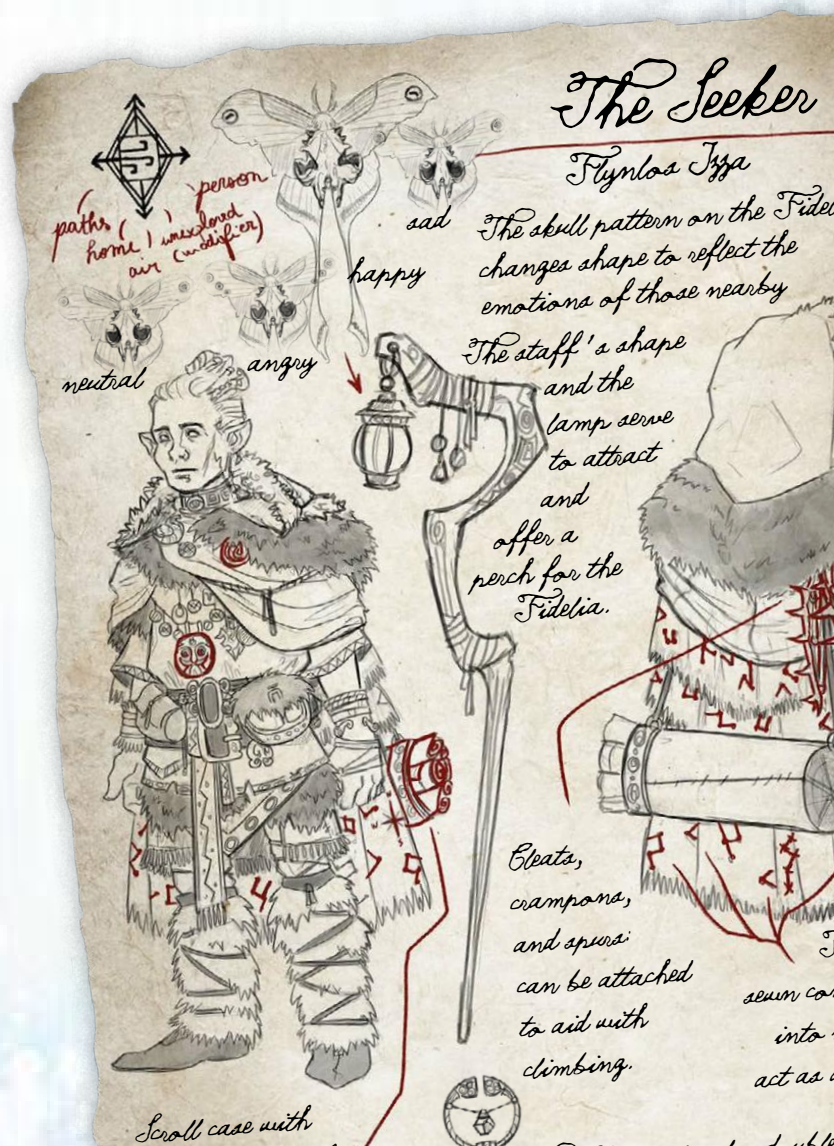 The Seeker
Flynlos Izza
person
paths
home
unexplored
air (modifier)
sad
happy
neutral
angry
The skull pattern on the Fidel
changes shape to reflect the
emotions of those nearby
The staff's shape
and the
lamp serve
to attract
and
offer a
perch for the
Fidelia.
Cleats,
crampons,
and spurs:
can be attached
to aid with
climbing.
sewn co
into
act as
Scroll case with